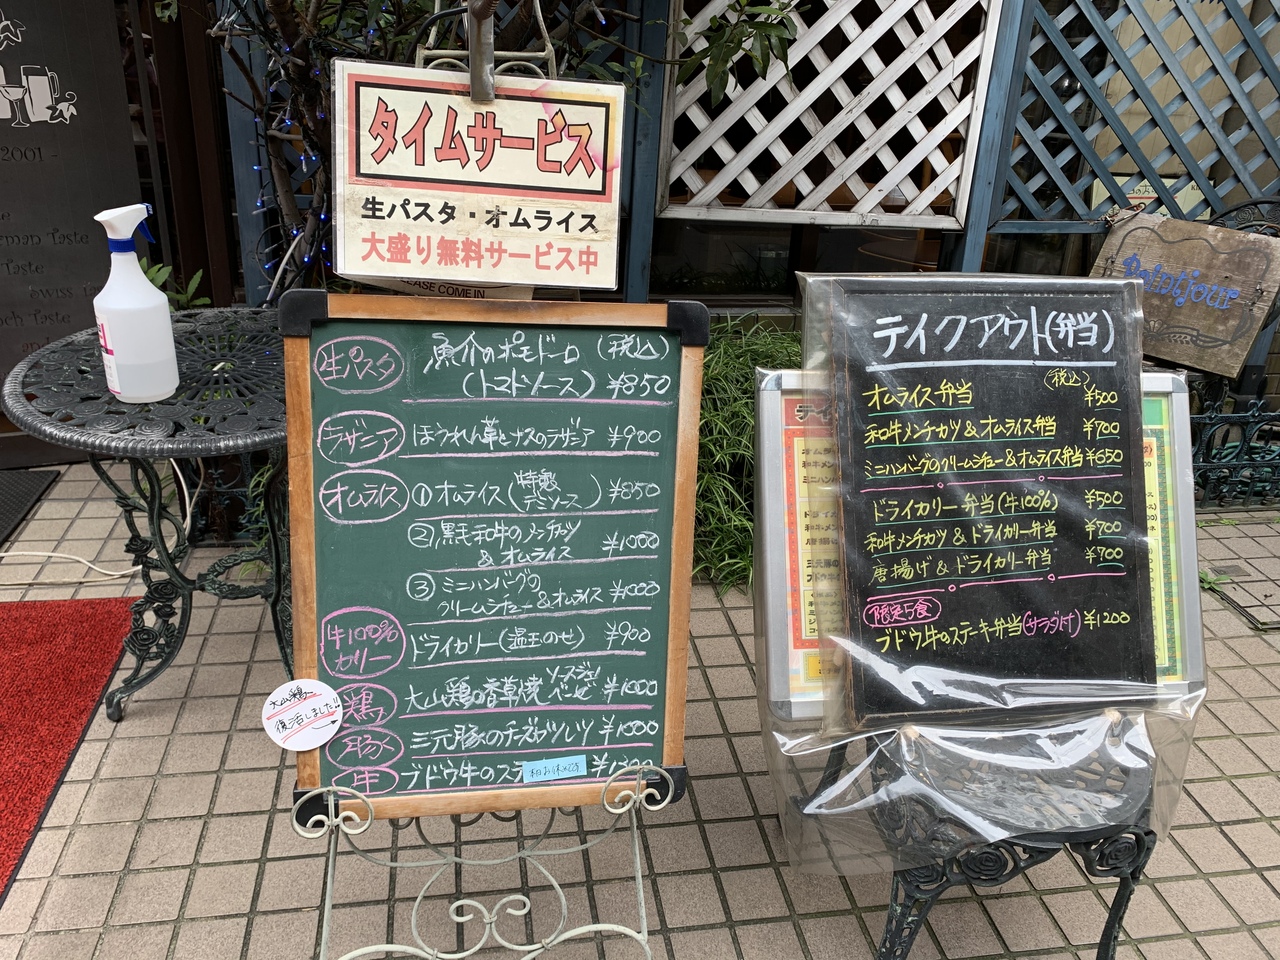 2001 -
Taste
Taste
Swiss
Taste
タイムサービス
生パスタ・オムライス
大盛り無料サービス中
PLEASE COME IN
生パスタ 魚介のポモドーロ (税込)
(トマトソース) ¥850
ラザニア ほうれん草とナスのラザニア ¥900
オムライス ①オムライス(特製デミソース) ¥850
②黒毛和牛のメンチカツ
&オムライス ¥1000
③ミニハンバーグの
クリームシチュー&オムライス ¥1000
牛100%カリー ドライカリー(温玉のせ) ¥900
鶏 大山鶏の香草焼 ¥1000
豚 三元豚のチーズカツレツ ¥1000
牛 ブドウ牛のステ 本日お休みです
大山鶏
復活しました!!
テイクアウト(弁当)
オムライス弁当 (税込) ¥500
和牛メンチカツ&オムライス弁当 ¥700
ミニハンバーグのクリームシチュー&オムライス弁当 ¥650
ドライカリー弁当(牛100%) ¥500
和牛メンチカツ&ドライカリー弁当 ¥700
唐揚げ&ドライカリー弁当 ¥700
限定5食
ブドウ牛のステーキ弁当(サラダ付) ¥1200